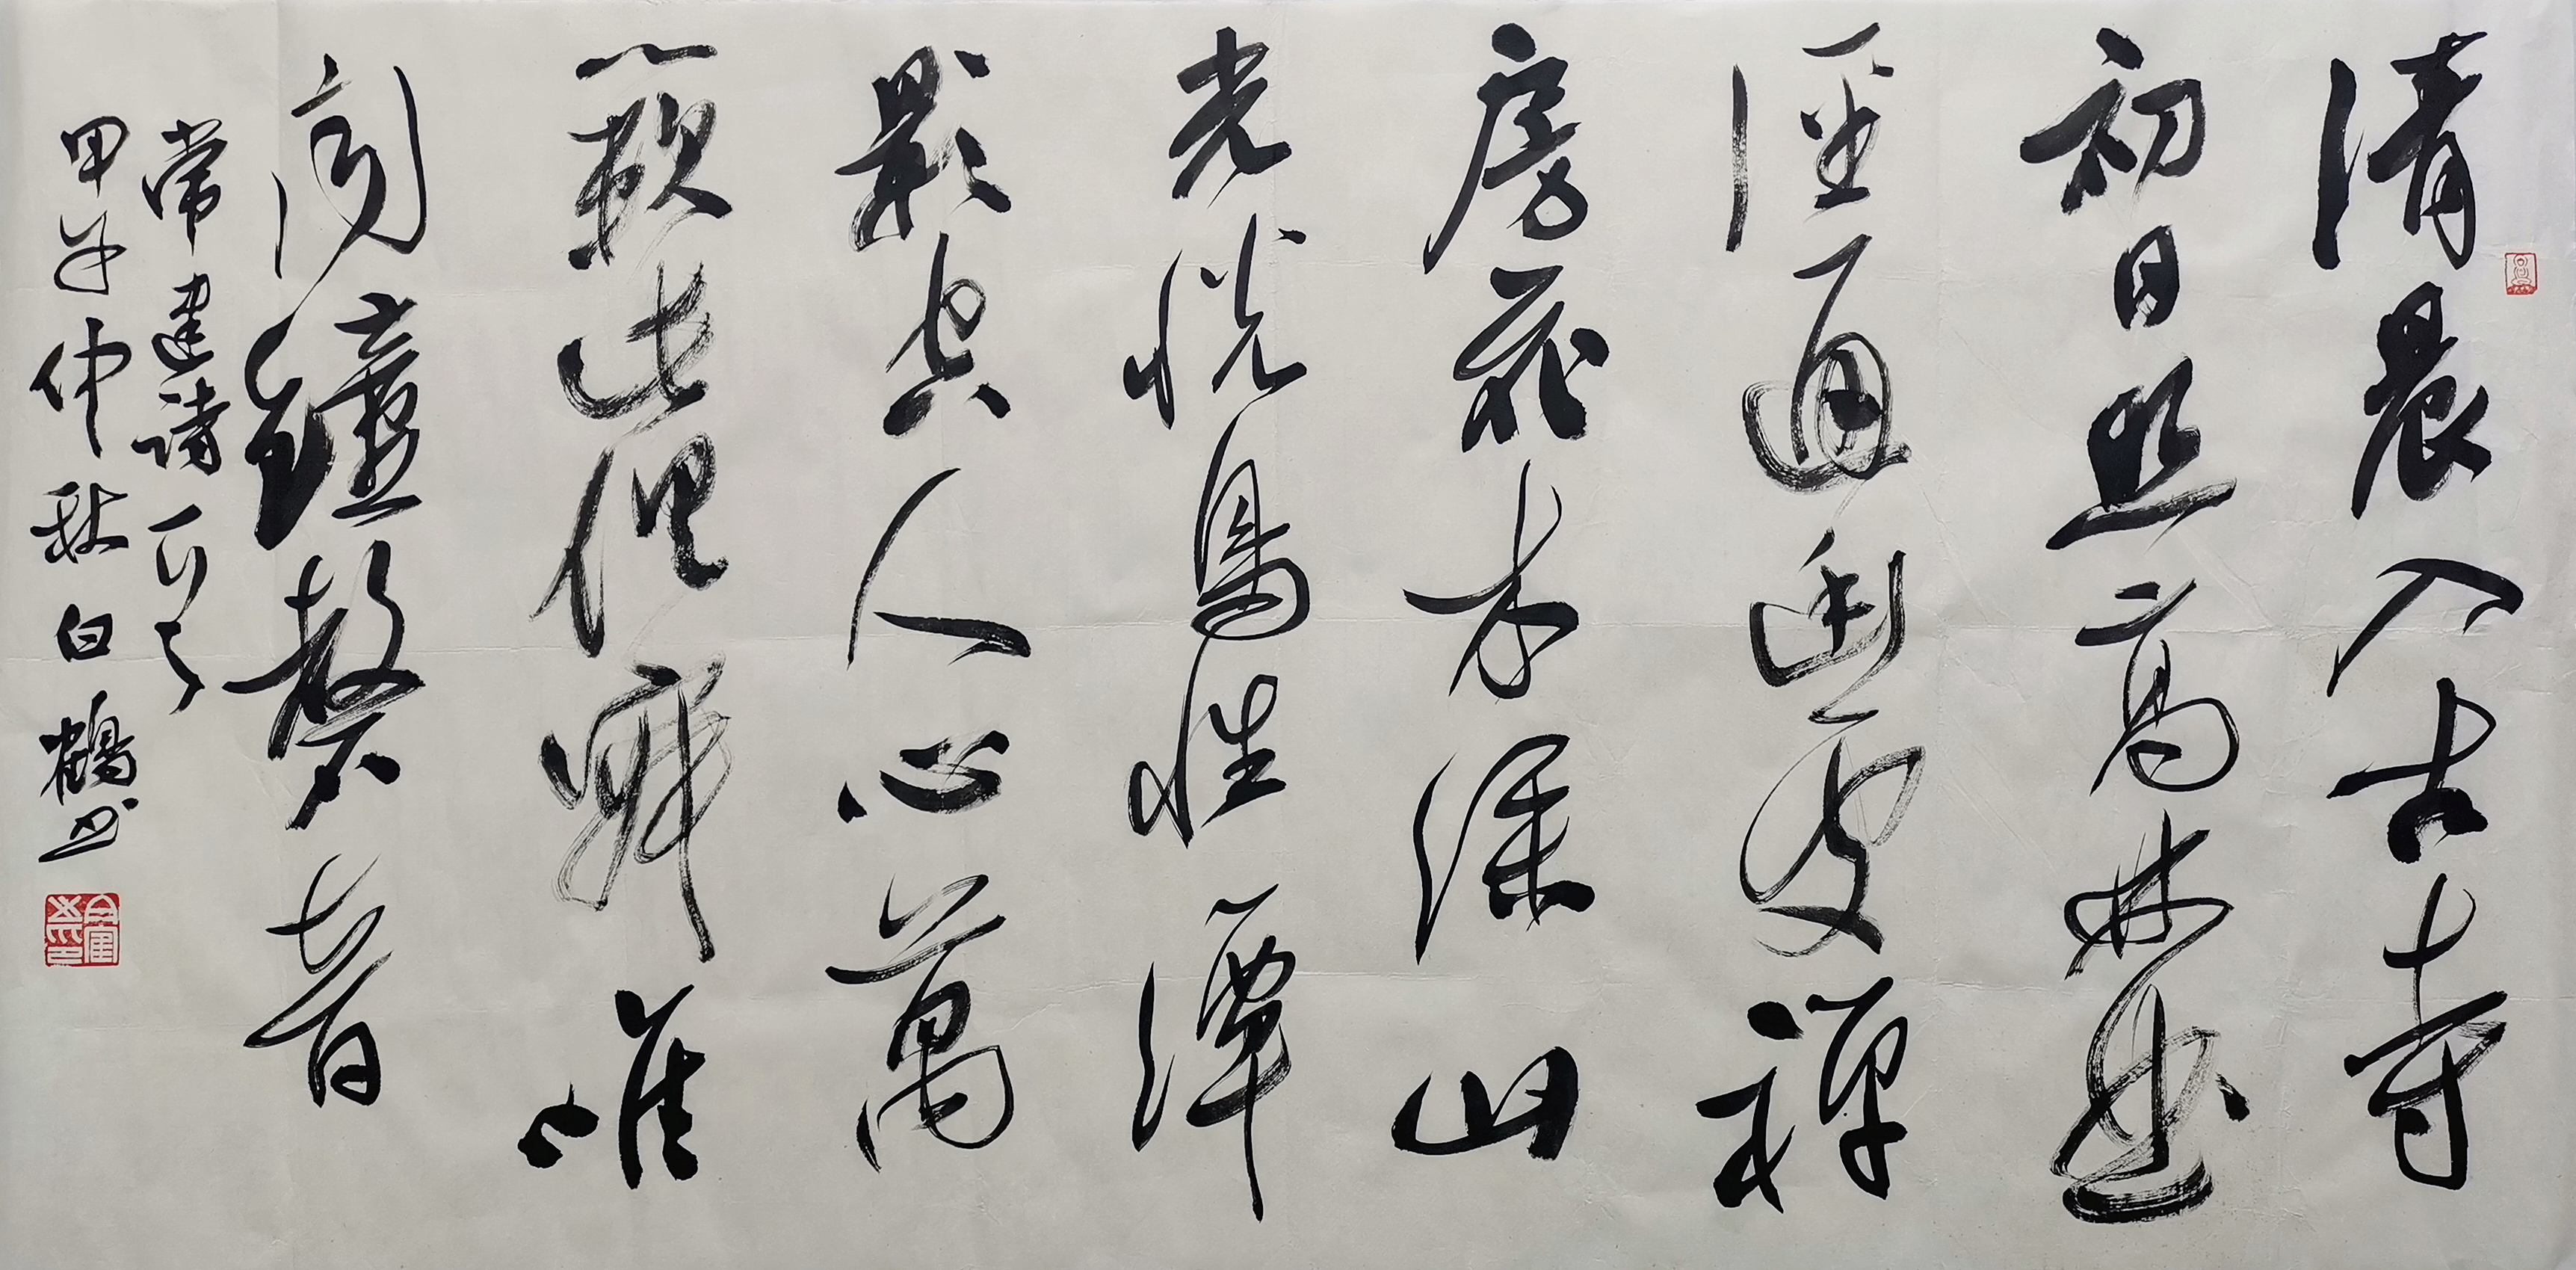 清晨入古寺
初日照高林曲
徑通幽處禪
房花木深山
光悦鳥性潭
影空人心萬
籟此俱寂唯
聞鐘磬音
常建詩一首
甲午仲秋白鶴书